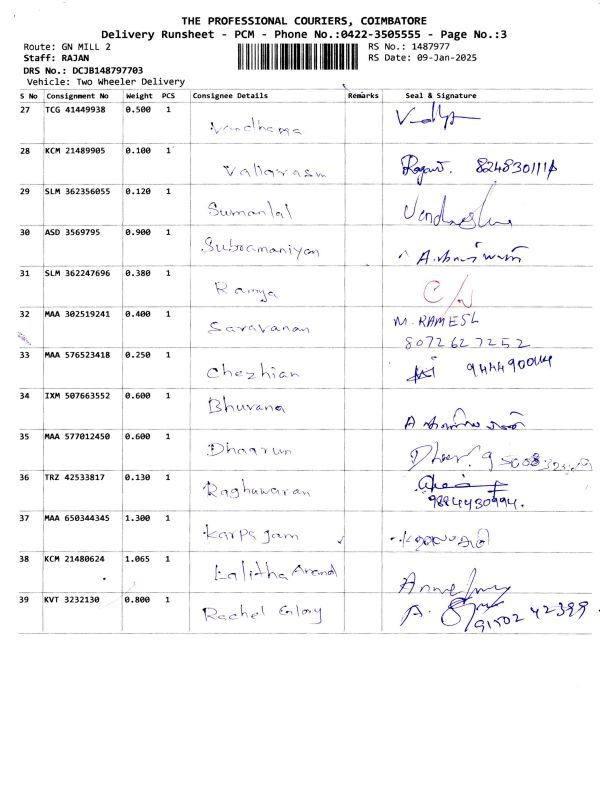 THE PROFESSIONAL COURIERS, COIMBATORE
Delivery Runsheet - PCM - Phone No.:0422-3505555 - Page No.:3
Route: GN MILL 2 RS No.: 1487977
Staff: RAJAN RS Date: 09-Jan-2025
DRS No.: DCJB148797703
Vehicle: Two Wheeler Delivery
S No Consignment No Weight PCS Consignee Details Remarks Seal & Signature
27 TCG 41449938 0.500 1 Vandhana
28 KCM 21489905 0.100 1 8248301111
29 SLM 362356055 0.120 1 Sumanlal
30 ASD 3569795 0.900 1 Subramaniyan
31 SLM 362247696 0.380 1 Ramya
32 MAA 302519241 0.400 1 Saravanan M. RAMESH
8072627252
33 MAA 576523418 0.250 1 Chezhian
34 IXM 507663552 0.600 1 Bhuvana
35 MAA 577012450 0.600 1 Dhaarun
36 TRZ 42533817 0.130 1 Raghuwaran
9884430994.
37 MAA 650344345 1.300 1 Karpagam
38 KCM 21480624 1.065 1 Lalitha Anand
39 KVT 3232130 0.800 1 Rachel Glory